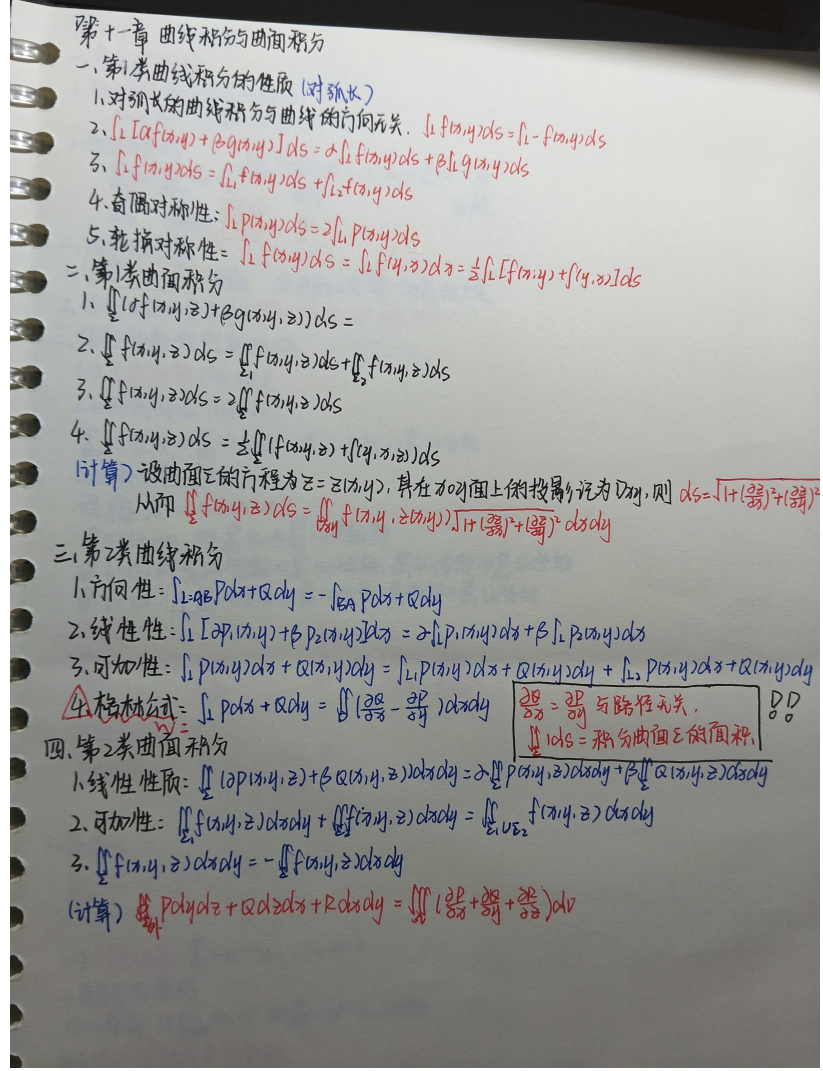 第十一章 曲线积分与曲面积分
一、第1类曲线积分的性质 (对弧长)
1、对弧长的曲线积分与曲线的方向无关. ∫L f(x,y)ds=∫L- f(x,y)ds
2、∫L [αf(x,y)+βg(x,y)]ds=α∫L f(x,y)ds+β∫L g(x,y)ds
3、∫L f(x,y)ds=∫L1 f(x,y)ds+∫L2 f(x,y)ds
4.奇偶对称性: ∫L P(x,y)ds=2∫L1 P(x,y)ds
5、轮换对称性= ∫L f(x,y)ds=∫L f(y,x)dx=½∫L [f(x,y)+f(y,x)]ds
二、第1类曲面积分
1、∬Σ (αf(x,y,z)+βg(x,y,z))ds=
2、∬Σ f(x,y,z)ds=∬Σ1 f(x,y,z)ds+∬Σ2 f(x,y,z)ds
3、∬Σ f(x,y,z)ds=2∬Σ f(x,y,z)ds
4、∬Σ f(x,y,z)ds=½∬Σ (f(x,y,z)+f(y,x,z))ds
(计算) 设曲面Σ的方程为z=z(x,y), 其在xoy面上的投影记为Dxy, 则 ds=√1+(∂z/∂x)²+(∂z/∂y)²
从而 ∬Σ f(x,y,z)ds=∬Dxy f(x,y,z(x,y))√1+(∂z/∂x)²+(∂z/∂y)² dxdy
三、第2类曲线积分
1、方向性: ∫L=AB Pdx+Qdy=-∫BA Pdx+Qdy
2、线性性: ∫L [∂P1(x,y)+βP2(x,y)]dx=∂∫L P1(x,y)dx+β∫L P2(x,y)dx
3、可加性: ∫L P(x,y)dx+Q(x,y)dy=∫L1 P(x,y)dx+Q(x,y)dy+∫L2 P(x,y)dx+Q(x,y)dy
4.格林公式= ∫L Pdx+Qdy=∬D (∂Q/∂x-∂P/∂y)dxdy
∂Q/∂x=∂P/∂y 与路径无关.
∬Σ 1ds=积分曲面Σ的面积.
四、第2类曲面积分
1、线性性质: ∬Σ (∂P(x,y,z)+βQ(x,y,z))dxdy=∂∬Σ P(x,y,z)dxdy+β∬Σ Q(x,y,z)dxdy
2、可加性: ∬Σ1 f(x,y,z)dxdy+∬Σ2 f(x,y,z)dxdy=∬Σ1∪Σ2 f(x,y,z)dxdy
3、∬Σ f(x,y,z)dxdy=-∬Σ f(x,y,z)dxdy
(计算) ∯Σ外 Pdydz+Qdzdx+Rdxdy=∭Ω (∂P/∂x+∂Q/∂y+∂R/∂z)dv